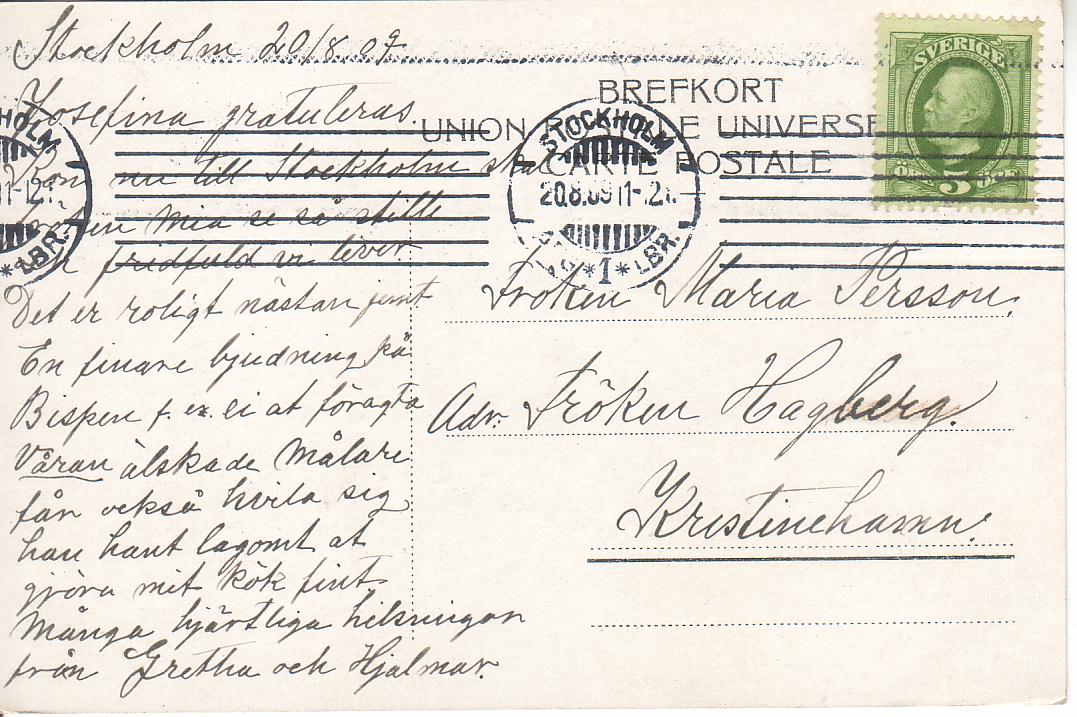 Stockholm 20/8 09
Josefina gratuleras.
BREFKORT
UNION POSTALE UNIVERSE
CARTE POSTALE
SVERIGE
ÖRE 5 ÖRE
STOCKHOLM
20.8.09 11-12 f.
*1* LBR.
HOLM
11-12 f.
* LBR.
Kom nu till Stockholm skal
mia se så stilla
fridfuld vi lever
Det er roligt nästan jemt
En finare bjudning på
Bispen f. ex. ei at föragta
Våran älskade Målare
får också hvila sig
han hant lagomt at
gjöra mit kök fint
Många hjärtliga helsningar
från Gretha och Hjalmar.
Fröken Maria Persson.
Adr. Fröken Hagberg.
Kristinehamn.